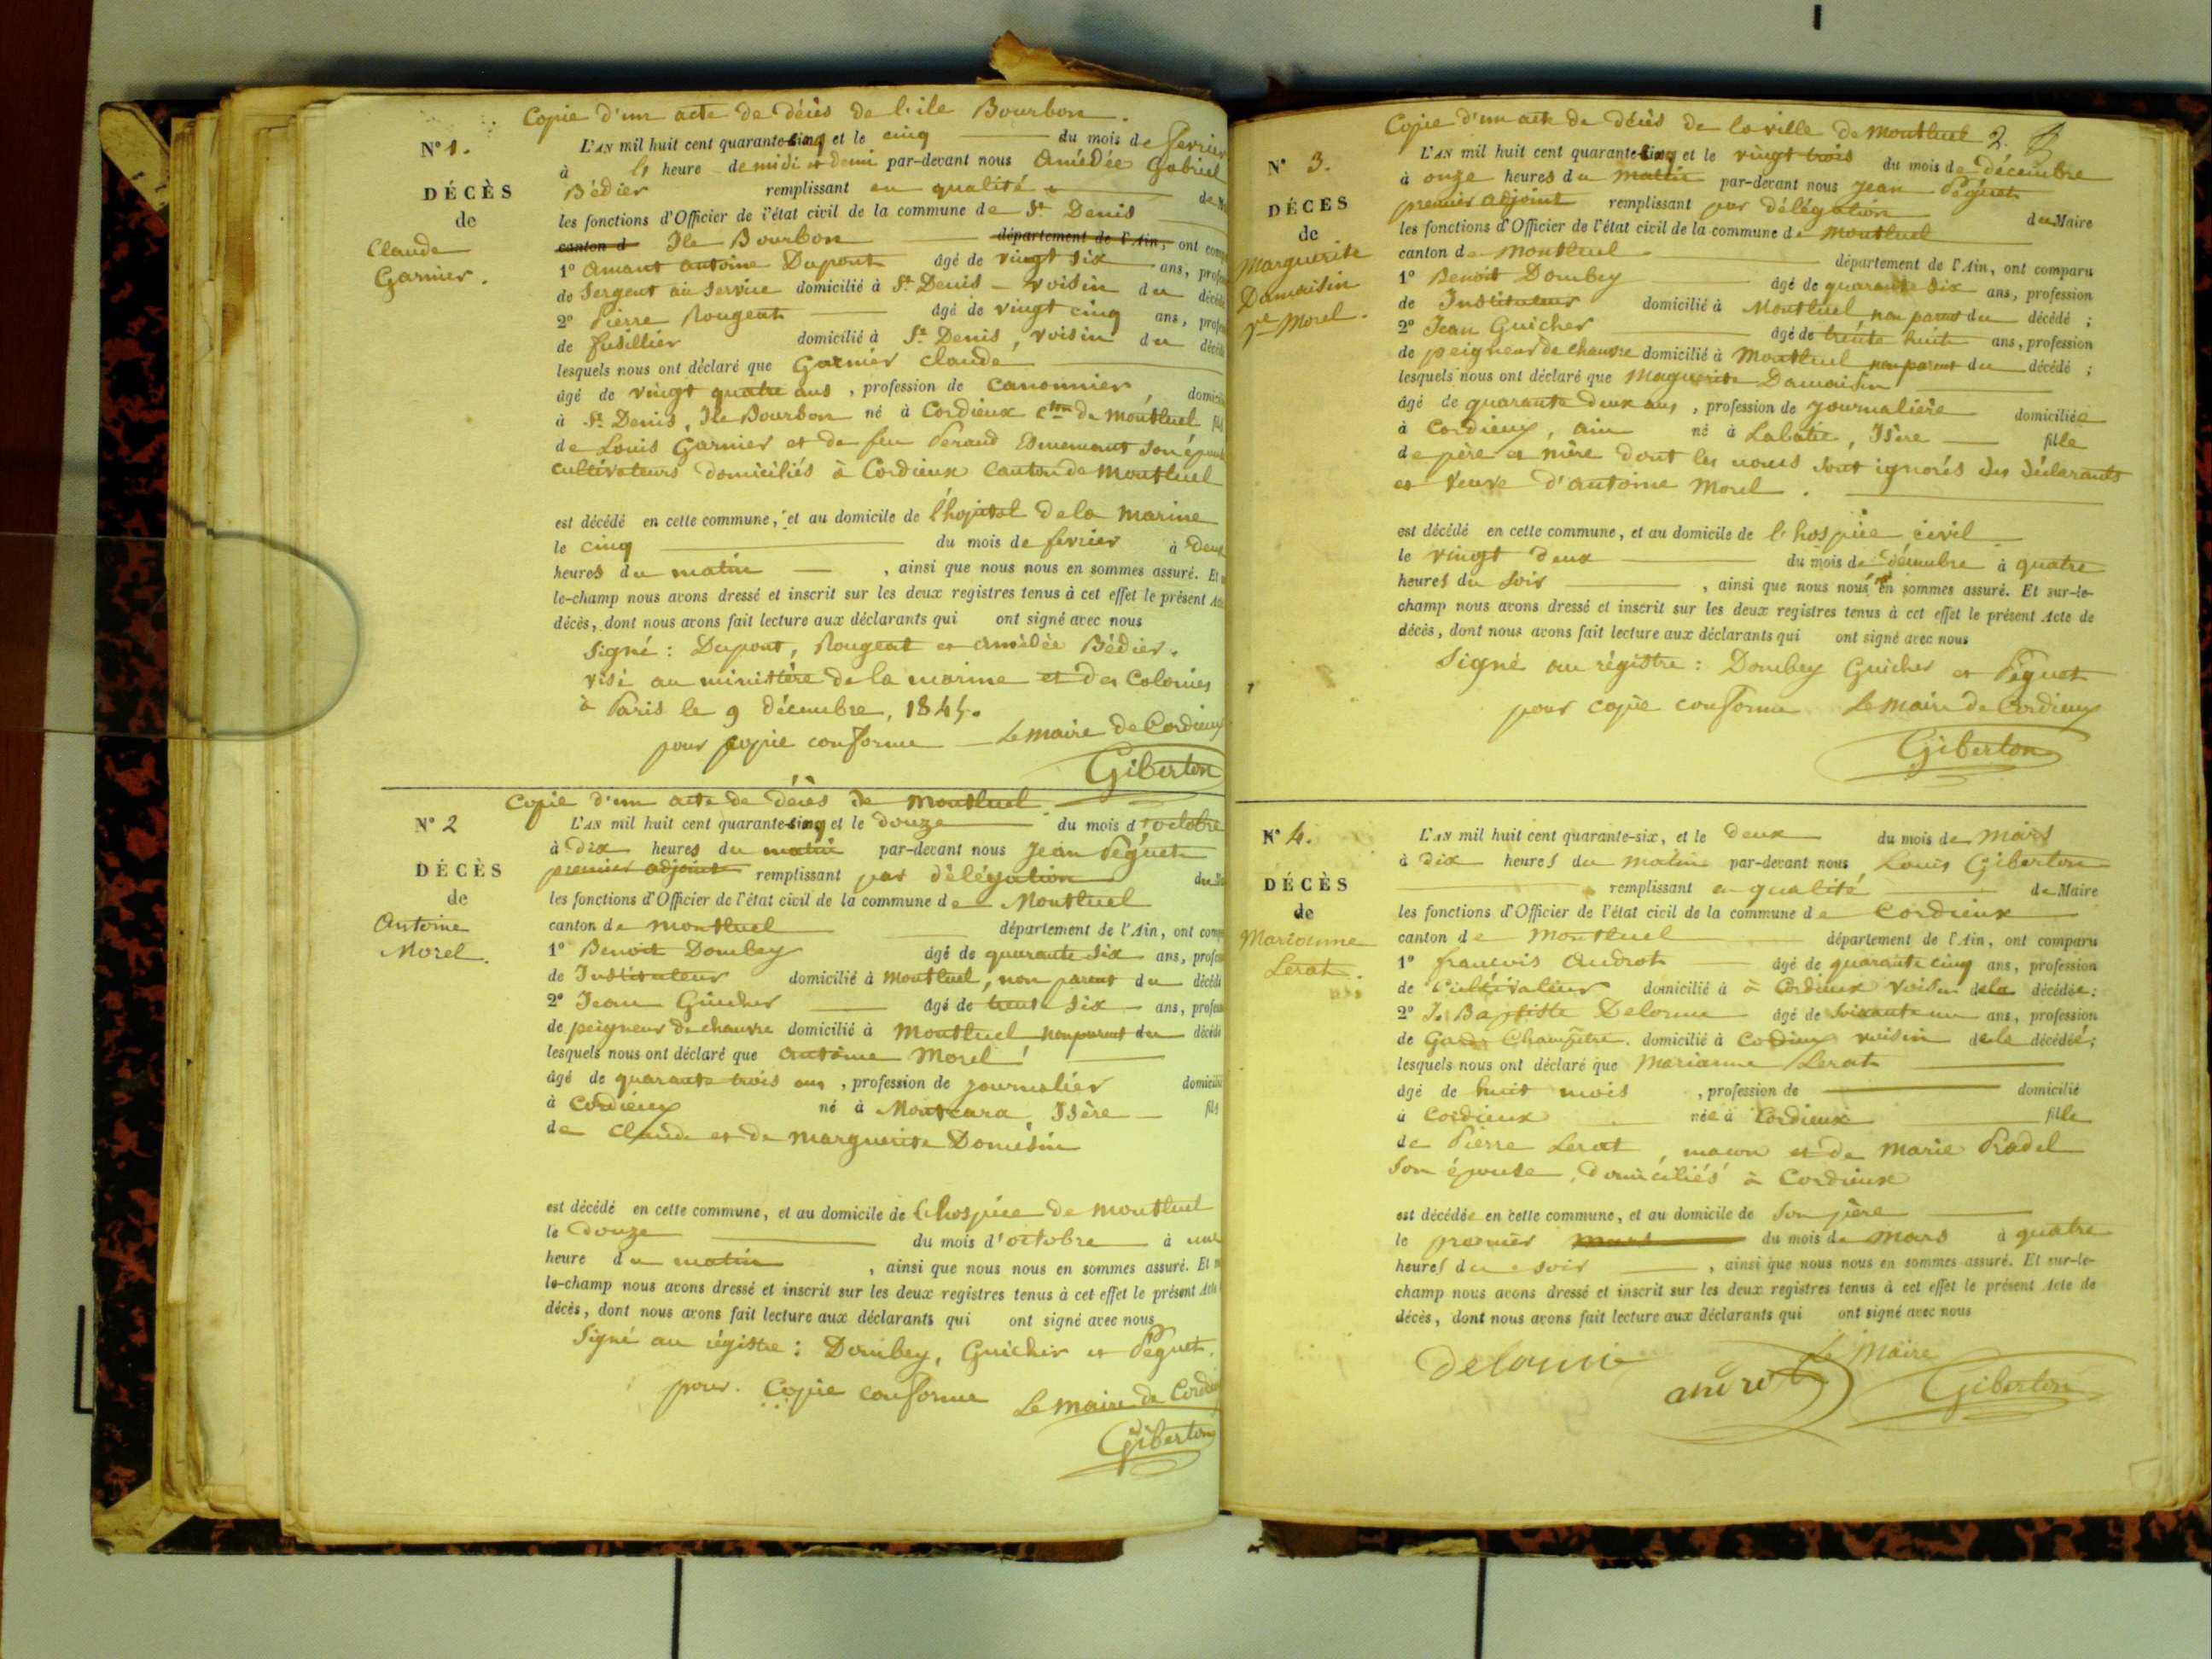 Copie d'un acte de décès de l'ile Bourbon.
N° 1.
L'AN mil huit cent quarante-cinq et le cinq du mois de fevrier
à heure de midi et demi par-devant nous Amédée Gabriel
DÉCÈS
Bédier remplissant en qualité
de
les fonctions d'Officier de l'état civil de la commune de St Denis
Claude
Garnier.
canton d Ile Bourbon département de l'Ain, ont
1° Amant Antoine Dupont âgé de vingt six ans,
de Sergent au Service domicilié à St Denis - voisin du
2° Pierre Rougeat âgé de vingt cinq ans,
de fusillier domicilié à St Denis, voisin du
lesquels nous ont déclaré que Garnier Claude
âgé de vingt quatre ans, profession de canonnier,
à St Denis, Ile Bourbon né à Cordieux cton de Montluel
de Louis Garnier et de feu son
cultivateurs domiciliés à Cordieux Canton de Montluel
est décédé en cette commune, et au domicile de l'hopital de la Marine
le cinq du mois de fevrier à deux
heures du matin, ainsi que nous nous en sommes assuré. Et
le-champ nous avons dressé et inscrit sur les deux registres tenus à cet effet le présent
décès, dont nous avons fait lecture aux déclarants qui ont signé avec nous
Signé: Dupont, Rougeat et Amédée Bédier.
visé au ministère de la marine et des Colonies
à Paris le 9 décembre, 1845.
pour copie conforme Le maire de Cordieux
Giberton
Copie d'un acte de décès de Montluel
N° 2
L'AN mil huit cent quarante-cinq et le douze du mois d'octobre
à dix heures du matin par-devant nous Jean Péguet
DÉCÈS
premier adjoint remplissant par délégation du
de
les fonctions d'Officier de l'état civil de la commune de Montluel
Antoine
Morel.
canton de Montluel département de l'Ain, ont
1° Benoit Dombey âgé de quarante six ans,
de Instituteur domicilié à Montluel, non parent du
2° Jean Guicher âgé de trente six ans,
de peigneur de chanvre domicilié à Montluel non parent du
lesquels nous ont déclaré que Antoine Morel
âgé de quarante trois ans, profession de journalier
à Cordieux né à Montcara, Isère
de Claude et de Marguerite Domésin
est décédé en cette commune, et au domicile de l'hospice de Montluel
le douze du mois d'octobre à une
heure du matin, ainsi que nous nous en sommes assuré. Et
le-champ nous avons dressé et inscrit sur les deux registres tenus à cet effet le présent
décès, dont nous avons fait lecture aux déclarants qui ont signé avec nous
Signé au régistre: Dombey, Guicher et Péguet.
pour Copie conforme Le maire de
Giberton
Copie d'un acte de décès de la ville de Montluel 2.
N° 3.
L'AN mil huit cent quarante-cinq et le vingt trois du mois de décembre
à onze heures du matin par-devant nous Jean Péguet
DÉCÈS
premier adjoint remplissant par délégation du Maire
de
les fonctions d'Officier de l'état civil de la commune de Montluel
Marguerite
Damaisin
ve Morel.
canton de Montluel département de l'Ain, ont comparu
1° Benoit Dombey âgé de quarante six ans, profession
de Instituteur domicilié à Montluel, non parent du décédé;
2° Jean Guicher âgé de trente huit ans, profession
de peigneur de chanvre domicilié à Montluel non parent du décédé;
lesquels nous ont déclaré que Maguerite Damaisin
âgé de quarante deux ans, profession de journalière domiciliée
à Cordieux, ain né à Labatie, Isère fille
de père et mère dont les noms sont ignorés des déclarants
et veuve d'antoine Morel.
est décédé en cette commune, et au domicile de l'hospice civil
le vingt deux du mois de décembre à quatre
heures du soir, ainsi que nous nous en sommes assuré. Et sur-le-
champ nous avons dressé et inscrit sur les deux registres tenus à cet effet le présent Acte de
décès, dont nous avons fait lecture aux déclarants qui ont signé avec nous
Signé au régistre: Dombey Guicher et Péguet
pour copie conforme Le maire de Cordieux
Giberton
N° 4.
L'AN mil huit cent quarante-six, et le deux du mois de mars
à dix heures du matin par-devant nous Louis Giberton
DÉCÈS
remplissant en qualité de Maire
de
les fonctions d'Officier de l'état civil de la commune de Cordieux
Marianne
Lerat.
canton de Montluel département de l'Ain, ont comparu
1° françois Androt âgé de quarante cinq ans, profession
de Cultivateur domicilié à à Cordieux voisin de la décédée;
2° J. Baptiste Delorme âgé de soixante un ans, profession
de Garde Champêtre domicilié à Cordieux voisin de la décédée;
lesquels nous ont déclaré que Marianne Lerat
âgé de huit mois, profession de domicilié
à Cordieux née à Cordieux fille
de Pierre Lerat, maçon et de Marie Pradel
son épouse, domiciliés à Cordieux
est décédée en cette commune, et au domicile de son père
le premier du mois de mars à quatre
heures du soir, ainsi que nous nous en sommes assuré. Et sur-le-
champ nous avons dressé et inscrit sur les deux registres tenus à cet effet le présent Acte de
décès, dont nous avons fait lecture aux déclarants qui ont signé avec nous
Le Maire
Delorme androt Giberton